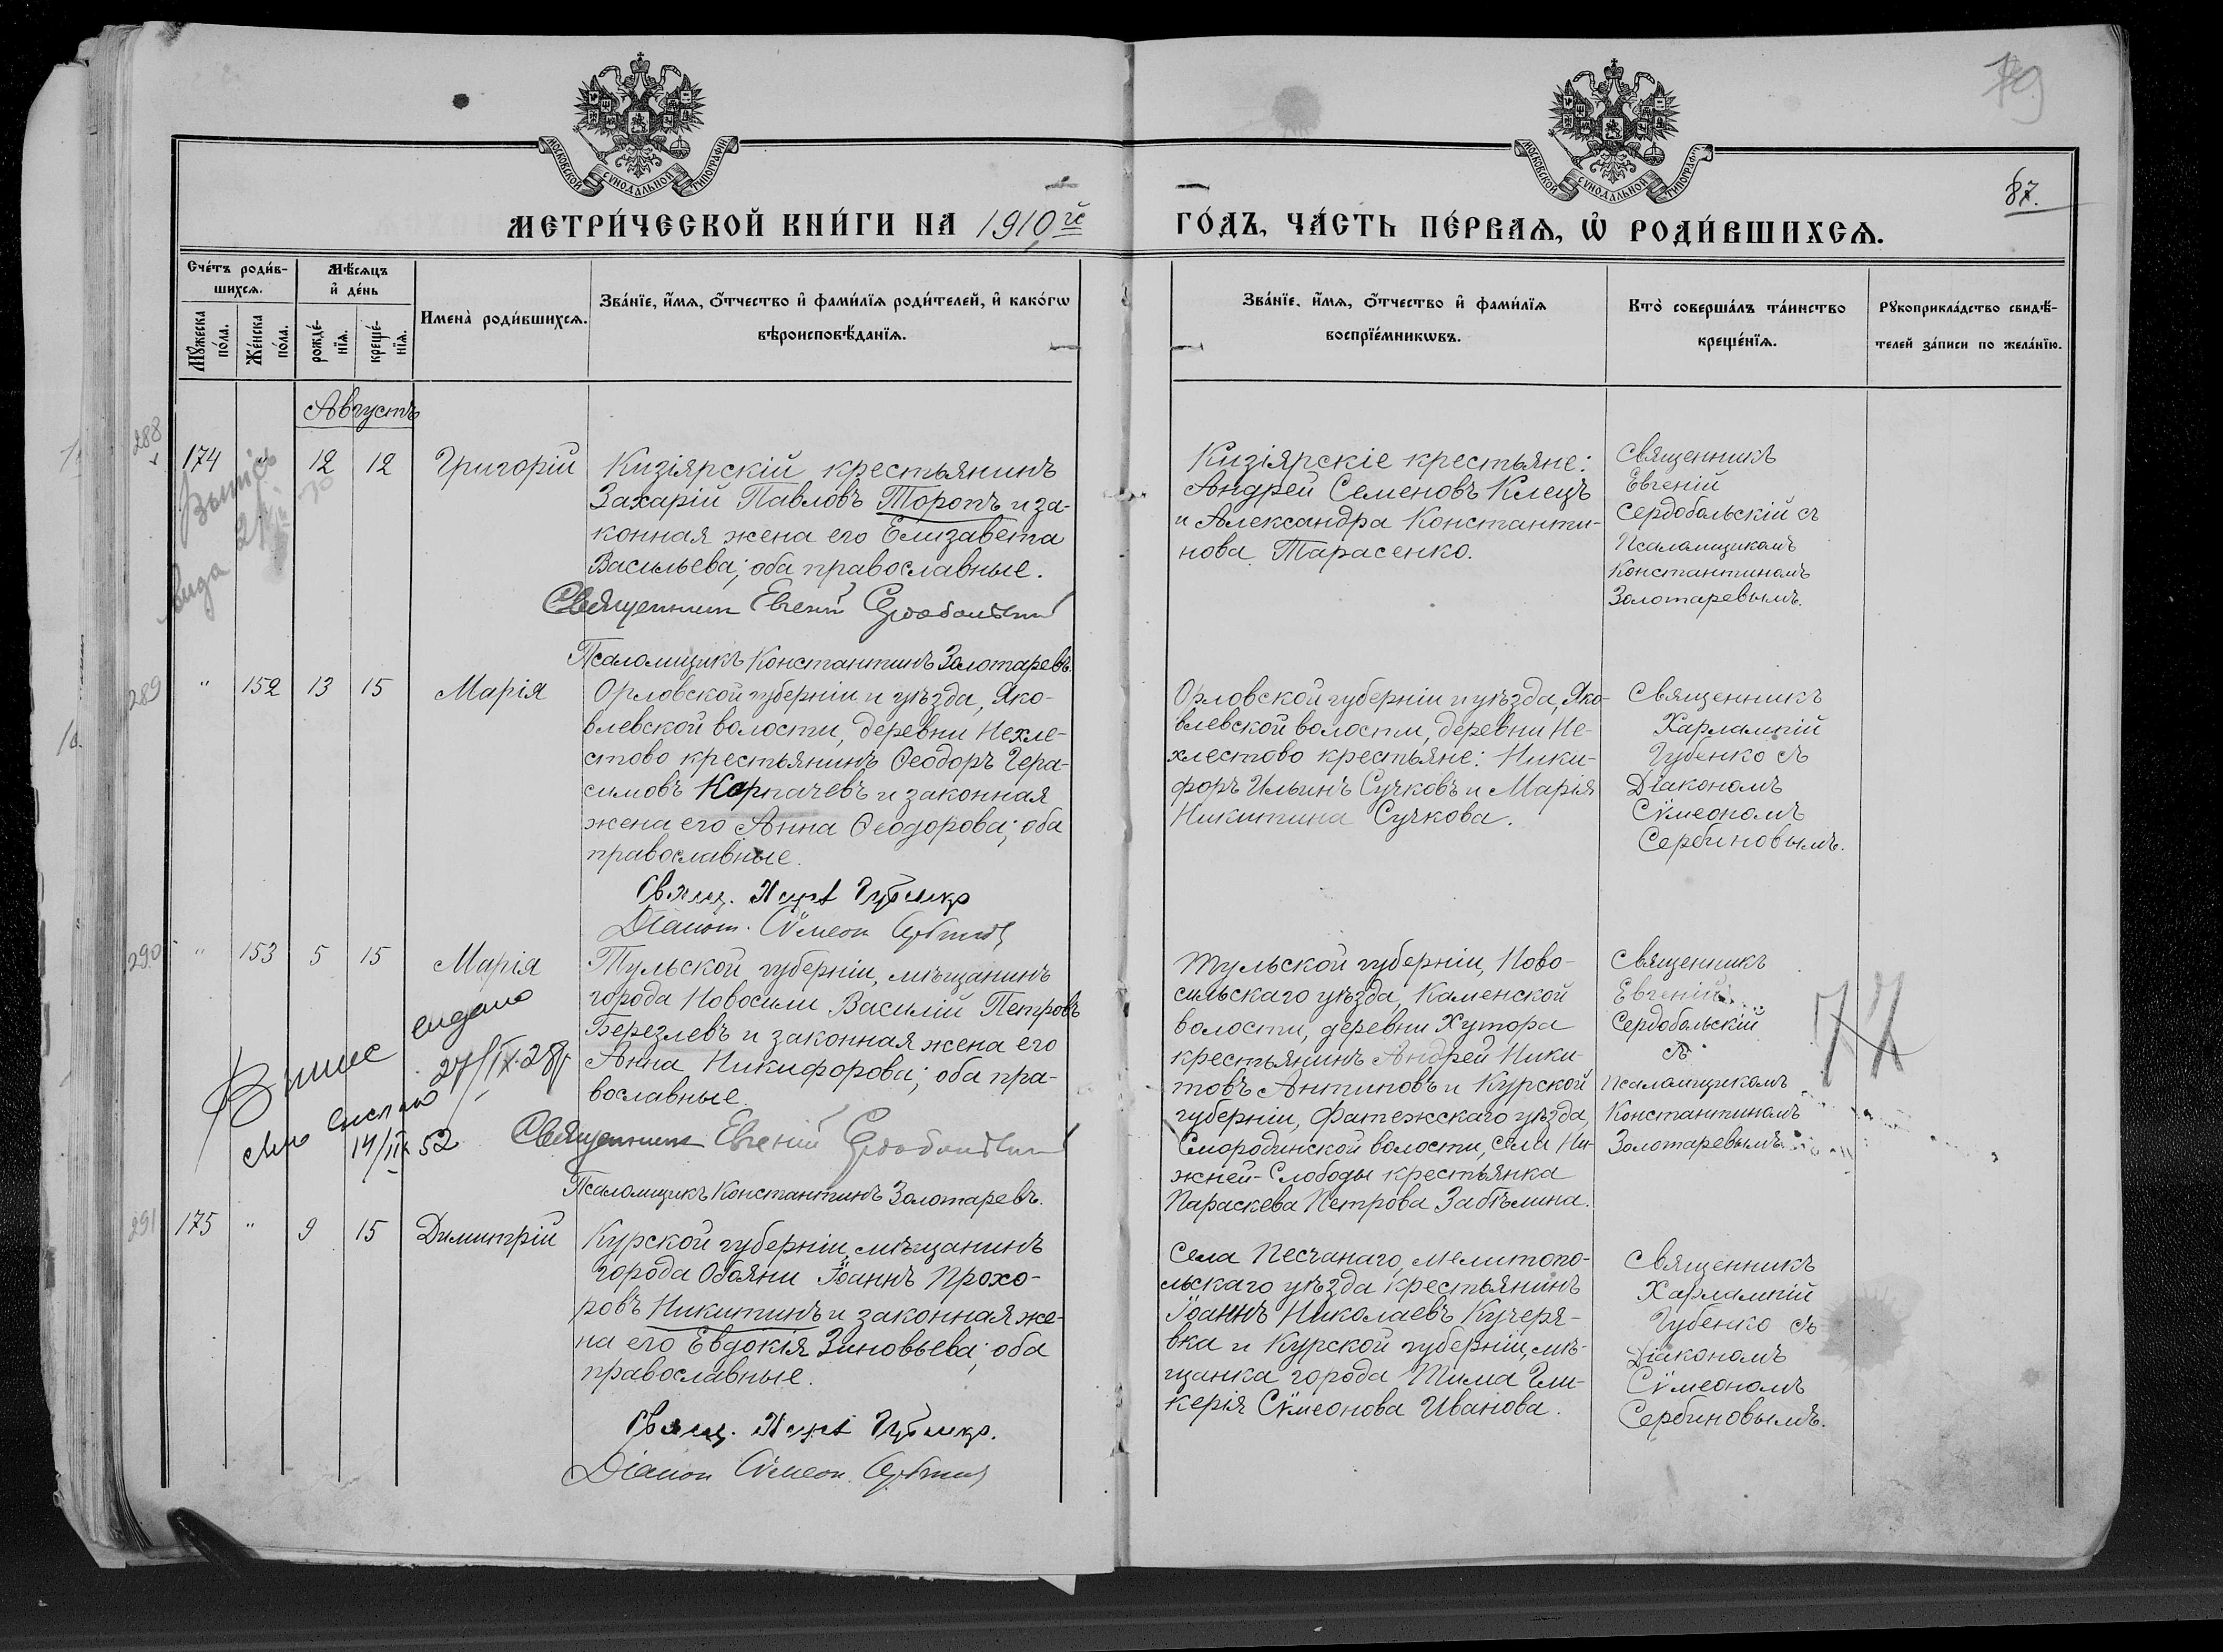 79
87.
МОСКОВСКОЙ СѴНОДАЛЬНОЙ ТИПОГРАФІИ
МОСКОВСКОЙ СѴНОДАЛЬНОЙ ТИПОГРАФІИ
МЕТРИ́ЧЕСКОЙ КНИ́ГИ НА 1910й
ГО́ДЪ, ЧА́СТЬ ПЕ́РВАѦ, Ѡ҆ РОДИ́ВШИХСѦ.
Сче́тъ роди́в-
шихсѧ.
Мꙋ́жеска
по́ла.
Же́нска
по́ла.
Мѣ́сѧцъ
и҆ де́нь
рожде́-
нїѧ.
креще́-
нїѧ.
Имена̀ роди́вшихсѧ.
Зва́нїе, и҆́мѧ, ѻ҆́тчество и҆ фами́лїѧ роди́телей, и҆ како́гѡ
вѣроисповѣ́данїѧ.
Зва́нїе, и҆́мѧ, ѻ҆́тчество и҆ фами́лїѧ
воспрїе́мникѡвъ.
Кто̀ соверша́лъ та́инство
креще́нїѧ.
Рꙋкоприкла́дство свидѣ́-
телей за́писи по жела́нїю.
Августъ
288
174 " 12 12 Григорій
Кизіярскій крестьянинъ
Захарій Павловъ Торопъ и за-
конная жена его Елизавета
Васильева; оба православные.
Священник Евгений Сердобольский
Псаломщикъ Константинъ Золотаревъ.
Кизіярскіе крестьяне:
Андрей Семеновъ Клецъ
и Александра Константи-
нова Тарасенко.
Священникъ
Евгеній
Сердобольскій съ
Псаломщикомъ
Константиномъ
Золотаревымъ.
289
" 152 13 15 Марія
Орловской губерніи и уѣзда, Яко-
влевской волости, деревни Нехле-
стово крестьянинъ Ѳеодоръ Гера-
симовъ Карпачевъ и законная
жена его Анна Ѳеодорова; оба
православные.
Свящ. Харл Губенко
Діакон Сѵмеон Сербинов
Орловской губерніи и уѣзда, Яко-
влевской волости, деревни Не-
хлестово крестьяне: Ники-
форъ Ильинъ Сучковъ и Марія
Никитина Сучкова.
Священникъ
Харлампій
Губенко съ
Діакономъ
Сѵмеономъ
Сербиновымъ.
290
" 153 5 15 Марія
выдано
27/IX-28г
14/III 52
Тульской губерніи, мѣщанинъ
города Новосили Василій Петровъ
Березлевъ и законная жена его
Анна Никифорова; оба пра-
вославные.
Священник Евгеній Сердобольский
Псаломщикъ Константинъ Золотаревъ.
Тульской губерніи, Ново-
сильскаго уѣзда, Каменской
волости, деревни Хутора
крестьянинъ Андрей Ники-
товъ Антиповъ и Курской
губерніи, Фатежскаго уѣзда,
Смородинской волости, села Ни-
жней-Слободы крестьянка
Параскева Петрова Забѣлина.
Священникъ
Евгеній
Сердобольскій
съ
Псаломщикомъ
Константиномъ
Золотаревымъ.
291
175 " 9 15 Димитрій
Курской губерніи, мѣщанинъ
города Обояни Іоаннъ Прохо-
ровъ Никитинъ и законная же-
на его Евдокія Зиновьева; оба
православные.
Свящ. Харл Губенко.
Діакон Сѵмеон Сербинов
Села Песчанаго, Мелитопо-
льскаго уѣзда крестьянинъ
Іоаннъ Николаевъ Кучеря-
вка и Курской губерніи, мѣ-
щанка города Тима Гли-
керія Сѵмеонова Иванова.
Священникъ
Харлампій
Губенко съ
Діакономъ
Сѵмеономъ
Сербиновымъ.